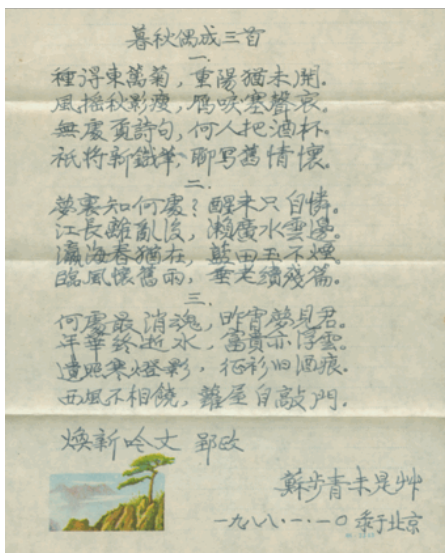 暮秋偶成三首
一.
種得東籬菊，重陽猶未開。
風搖秋影瘦，雁唳塞聲哀。
無處覓詩句，何人把酒杯。
祇將新鐵筆，聊写舊情懷。
二.
夢裏知何處？醒来只自憐。
江長離亂後，瀬廣水雲邊。
瀛海春猶在，藍田玉不煙。
臨風懷舊雨，垂老續殘篇。
三.
何處最消魂，昨宵夢見君。
年華终逝水，富貴亦浮雲。
遺照寒燈影，征衫旧酒痕。
西風不相饒，籬屋自敲門.
煥新吟丈 郢政
蘇步青未是艸
一九八八·一·一〇 于北京